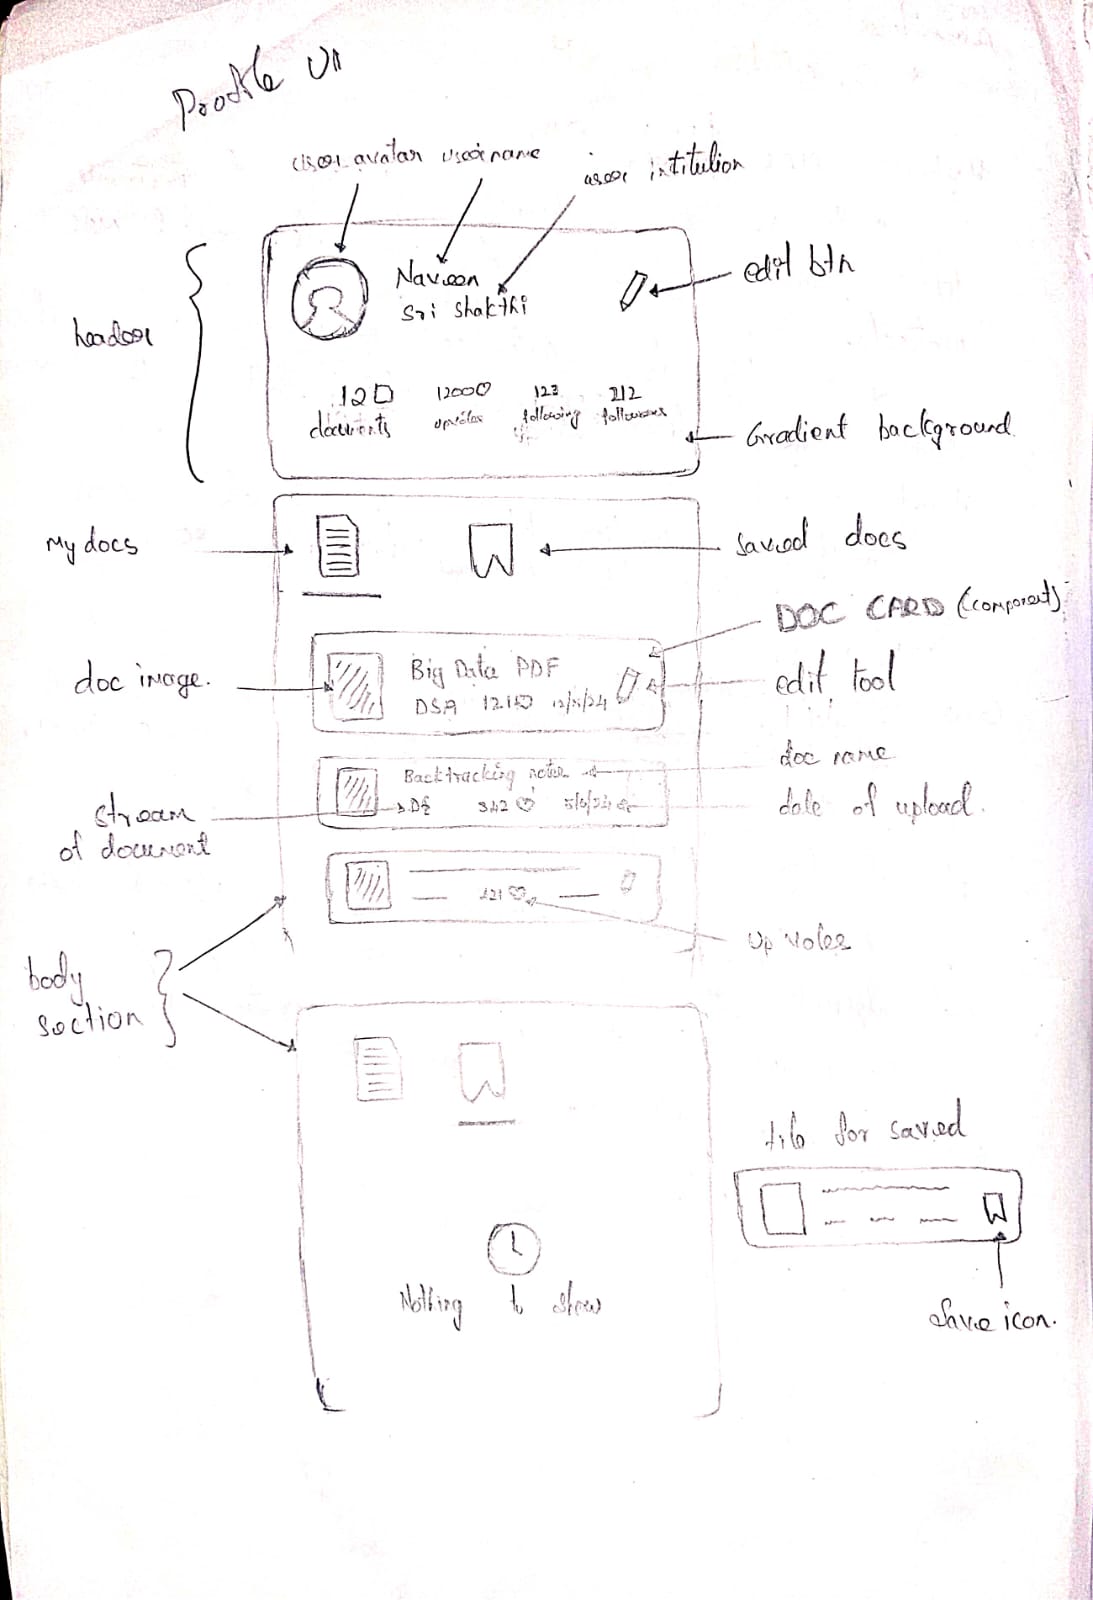 Profile UI
user avatar username
user intitution
header
Naveen
Sri Shakthi
edit btn
120
documents
1200
upvotes
123
following
212
followers
Gradient background
My docs
saved docs
DOC CARD (component)
doc image.
Big Data PDF
DSA 12/5/24
edit tool
Backtracking notes
DS 342 5/6/24
doc name
date of upload.
stream
of document
121
up votes
body
section
Nothing to show
tile for saved
Save icon.